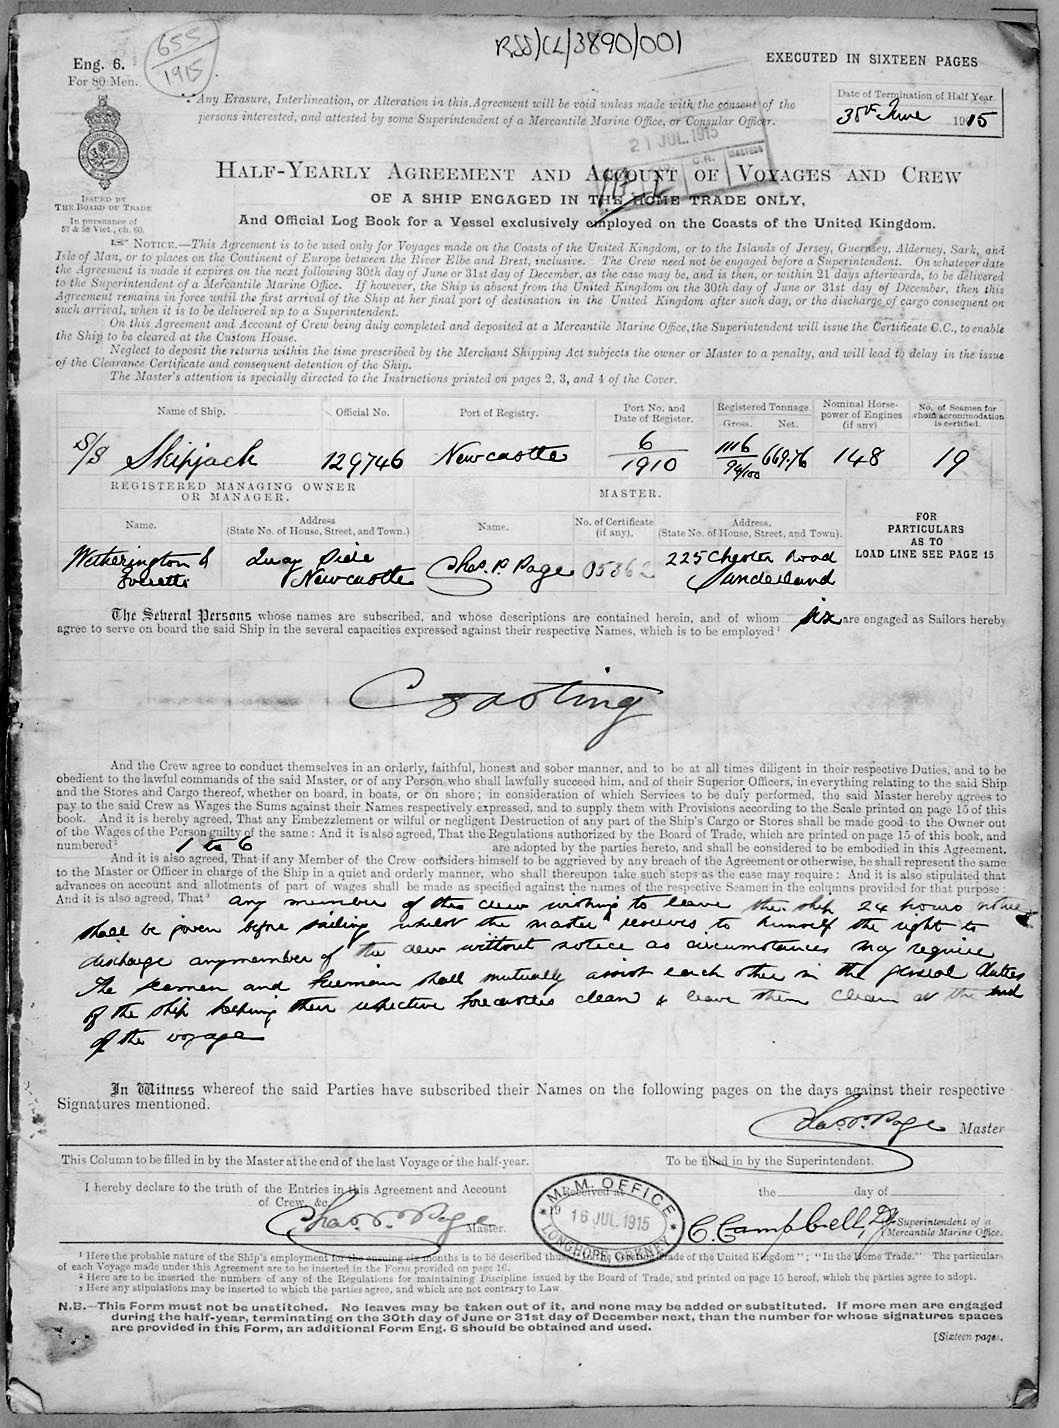 RSS/CL/3890/001
655
1915
Eng. 6.
For 80 Men.
EXECUTED IN SIXTEEN PAGES
Any Erasure, Interlineation, or Alteration in this Agreement will be void unless made with the consent of the
persons interested, and attested by some Superintendent of a Mercantile Marine Office, or Consular Officer.
Date of Termination of Half Year.
30th June 1915
21 JUL. 1915
C.R. MASTERS
ISSUED BY
THE BOARD OF TRADE
In pursuance of
57 & 58 Vict., ch. 60.
HALF-YEARLY AGREEMENT AND ACCOUNT OF VOYAGES AND CREW
OF A SHIP ENGAGED IN THE HOME TRADE ONLY,
And Official Log Book for a Vessel exclusively employed on the Coasts of the United Kingdom.
☞ NOTICE.—This Agreement is to be used only for Voyages made on the Coasts of the United Kingdom, or to the Islands of Jersey, Guernsey, Alderney, Sark, and
Isle of Man, or to places on the Continent of Europe between the River Elbe and Brest, inclusive. The Crew need not be engaged before a Superintendent. On whatever date
the Agreement is made it expires on the next following 30th day of June or 31st day of December, as the case may be, and is then, or within 21 days afterwards, to be delivered
to the Superintendent of a Mercantile Marine Office. If however, the Ship is absent from the United Kingdom on the 30th day of June or 31st day of December, then this
Agreement remains in force until the first arrival of the Ship at her final port of destination in the United Kingdom after such day, or the discharge of cargo consequent on
such arrival, when it is to be delivered up to a Superintendent.
On this Agreement and Account of Crew being duly completed and deposited at a Mercantile Marine Office, the Superintendent will issue the Certificate C.C., to enable
the Ship to be cleared at the Custom House.
Neglect to deposit the returns within the time prescribed by the Merchant Shipping Act subjects the owner or Master to a penalty, and will lead to delay in the issue
of the Clearance Certificate and consequent detention of the Ship.
The Master's attention is specially directed to the Instructions printed on pages 2, 3, and 4 of the Cover.
Name of Ship. Official No. Port of Registry. Port No. and Date of Register. Registered Tonnage. Gross. Net. Nominal Horse-power of Engines (if any) No. of Seamen for whom accommodation is certified.
S/S Skipjack 129746 Newcastle 6/1910 1116 94/100 669.76 148 19
REGISTERED MANAGING OWNER OR MANAGER.
MASTER.
Name. Address (State No. of House, Street, and Town.) Name. No. of Certificate (if any). Address. (State No. of House, Street, and Town).
FOR PARTICULARS AS TO LOAD LINE SEE PAGE 15
Witherington & Everett Quay Side Newcastle Chas. P. Page 05862 225 Chester Road Sunderland
The Several Persons whose names are subscribed, and whose descriptions are contained herein, and of whom six are engaged as Sailors hereby
agree to serve on board the said Ship in the several capacities expressed against their respective Names, which is to be employed¹
Coasting
And the Crew agree to conduct themselves in an orderly, faithful, honest and sober manner, and to be at all times diligent in their respective Duties, and to be
obedient to the lawful commands of the said Master, or of any Person who shall lawfully succeed him, and of their Superior Officers, in everything relating to the said Ship
and the Stores and Cargo thereof, whether on board, in boats, or on shore; in consideration of which Services to be duly performed, the said Master hereby agrees to
pay to the said Crew as Wages the Sums against their Names respectively expressed, and to supply them with Provisions according to the Scale printed on page 15 of this
book. And it is hereby agreed, That any Embezzlement or wilful or negligent Destruction of any part of the Ship's Cargo or Stores shall be made good to the Owner out
of the Wages of the Person guilty of the same: And it is also agreed, That the Regulations authorized by the Board of Trade, which are printed on page 15 of this book, and
numbered² 1 to 6 are adopted by the parties hereto, and shall be considered to be embodied in this Agreement.
And it is also agreed, That if any Member of the Crew considers himself to be aggrieved by any breach of the Agreement or otherwise, he shall represent the same
to the Master or Officer in charge of the Ship in a quiet and orderly manner, who shall thereupon take such steps as the case may require: And it is also stipulated that
advances on account and allotments of part of wages shall be made as specified against the names of the respective Seamen in the columns provided for that purpose:
And it is also agreed, That³ any member of the crew wishing to leave the ship 24 hours notice
shall be given before sailing whilst the master reserves to himself the right to
discharge any member of the crew without notice as circumstances may require
The seamen and firemen shall mutually assist each other in the general duties
of the ship keeping their respective forecastles clean & leave them clean at the end
of the voyage
In Witness whereof the said Parties have subscribed their Names on the following pages on the days against their respective
Signatures mentioned.
Chas. P. Page Master
This Column to be filled in by the Master at the end of the last Voyage or the half-year.
To be filled in by the Superintendent.
I hereby declare to the truth of the Entries in this Agreement and Account
of Crew, &c.
Chas. P. Page Master.
Received at
M.M. OFFICE
16 JUL. 1915
LONGHOPE, ORKNEY
the day of 19
C. Campbell, Dy Superintendent of a Mercantile Marine Office.
¹ Here the probable nature of the Ship's employment for the ensuing six months is to be described thus: Trade of the United Kingdom"; "In the Home Trade." The particulars
of each Voyage made under this Agreement are to be inserted in the Form provided on page 16.
² Here are to be inserted the numbers of any of the Regulations for maintaining Discipline issued by the Board of Trade, and printed on page 15 hereof, which the parties agree to adopt.
³ Here any stipulations may be inserted to which the parties agree, and which are not contrary to Law.
N.B.—This Form must not be unstitched. No leaves may be taken out of it, and none may be added or substituted. If more men are engaged
during the half-year, terminating on the 30th day of June or 31st day of December next, than the number for whose signatures spaces
are provided in this Form, an additional Form Eng. 6 should be obtained and used.
[Sixteen pages.